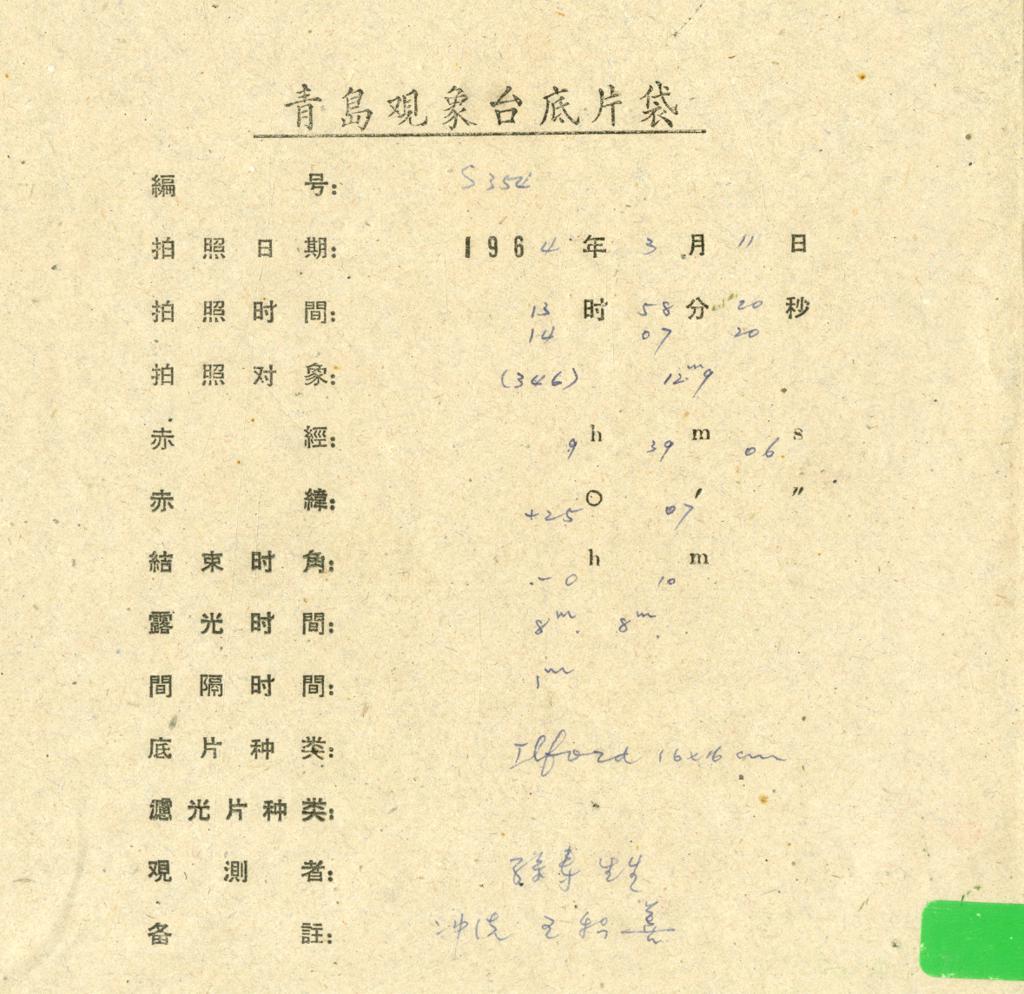 青島观象台底片袋
編号: S 354
拍照日期: 1964年3月11日
拍照时間: 13时58分20秒
14 07 20
拍照对象: (346) 12ᵐ9
赤經: 9h 39m 06s
赤緯: +25° 07′ ″
結束时角: -0h 10m
露光时間: 8ᵐ. 8ᵐ.
間隔时間: 1ᵐ
底片种类: Ilford 16×16 cm
濾光片种类:
观测者: 寿
备註: 冲洗 王 善